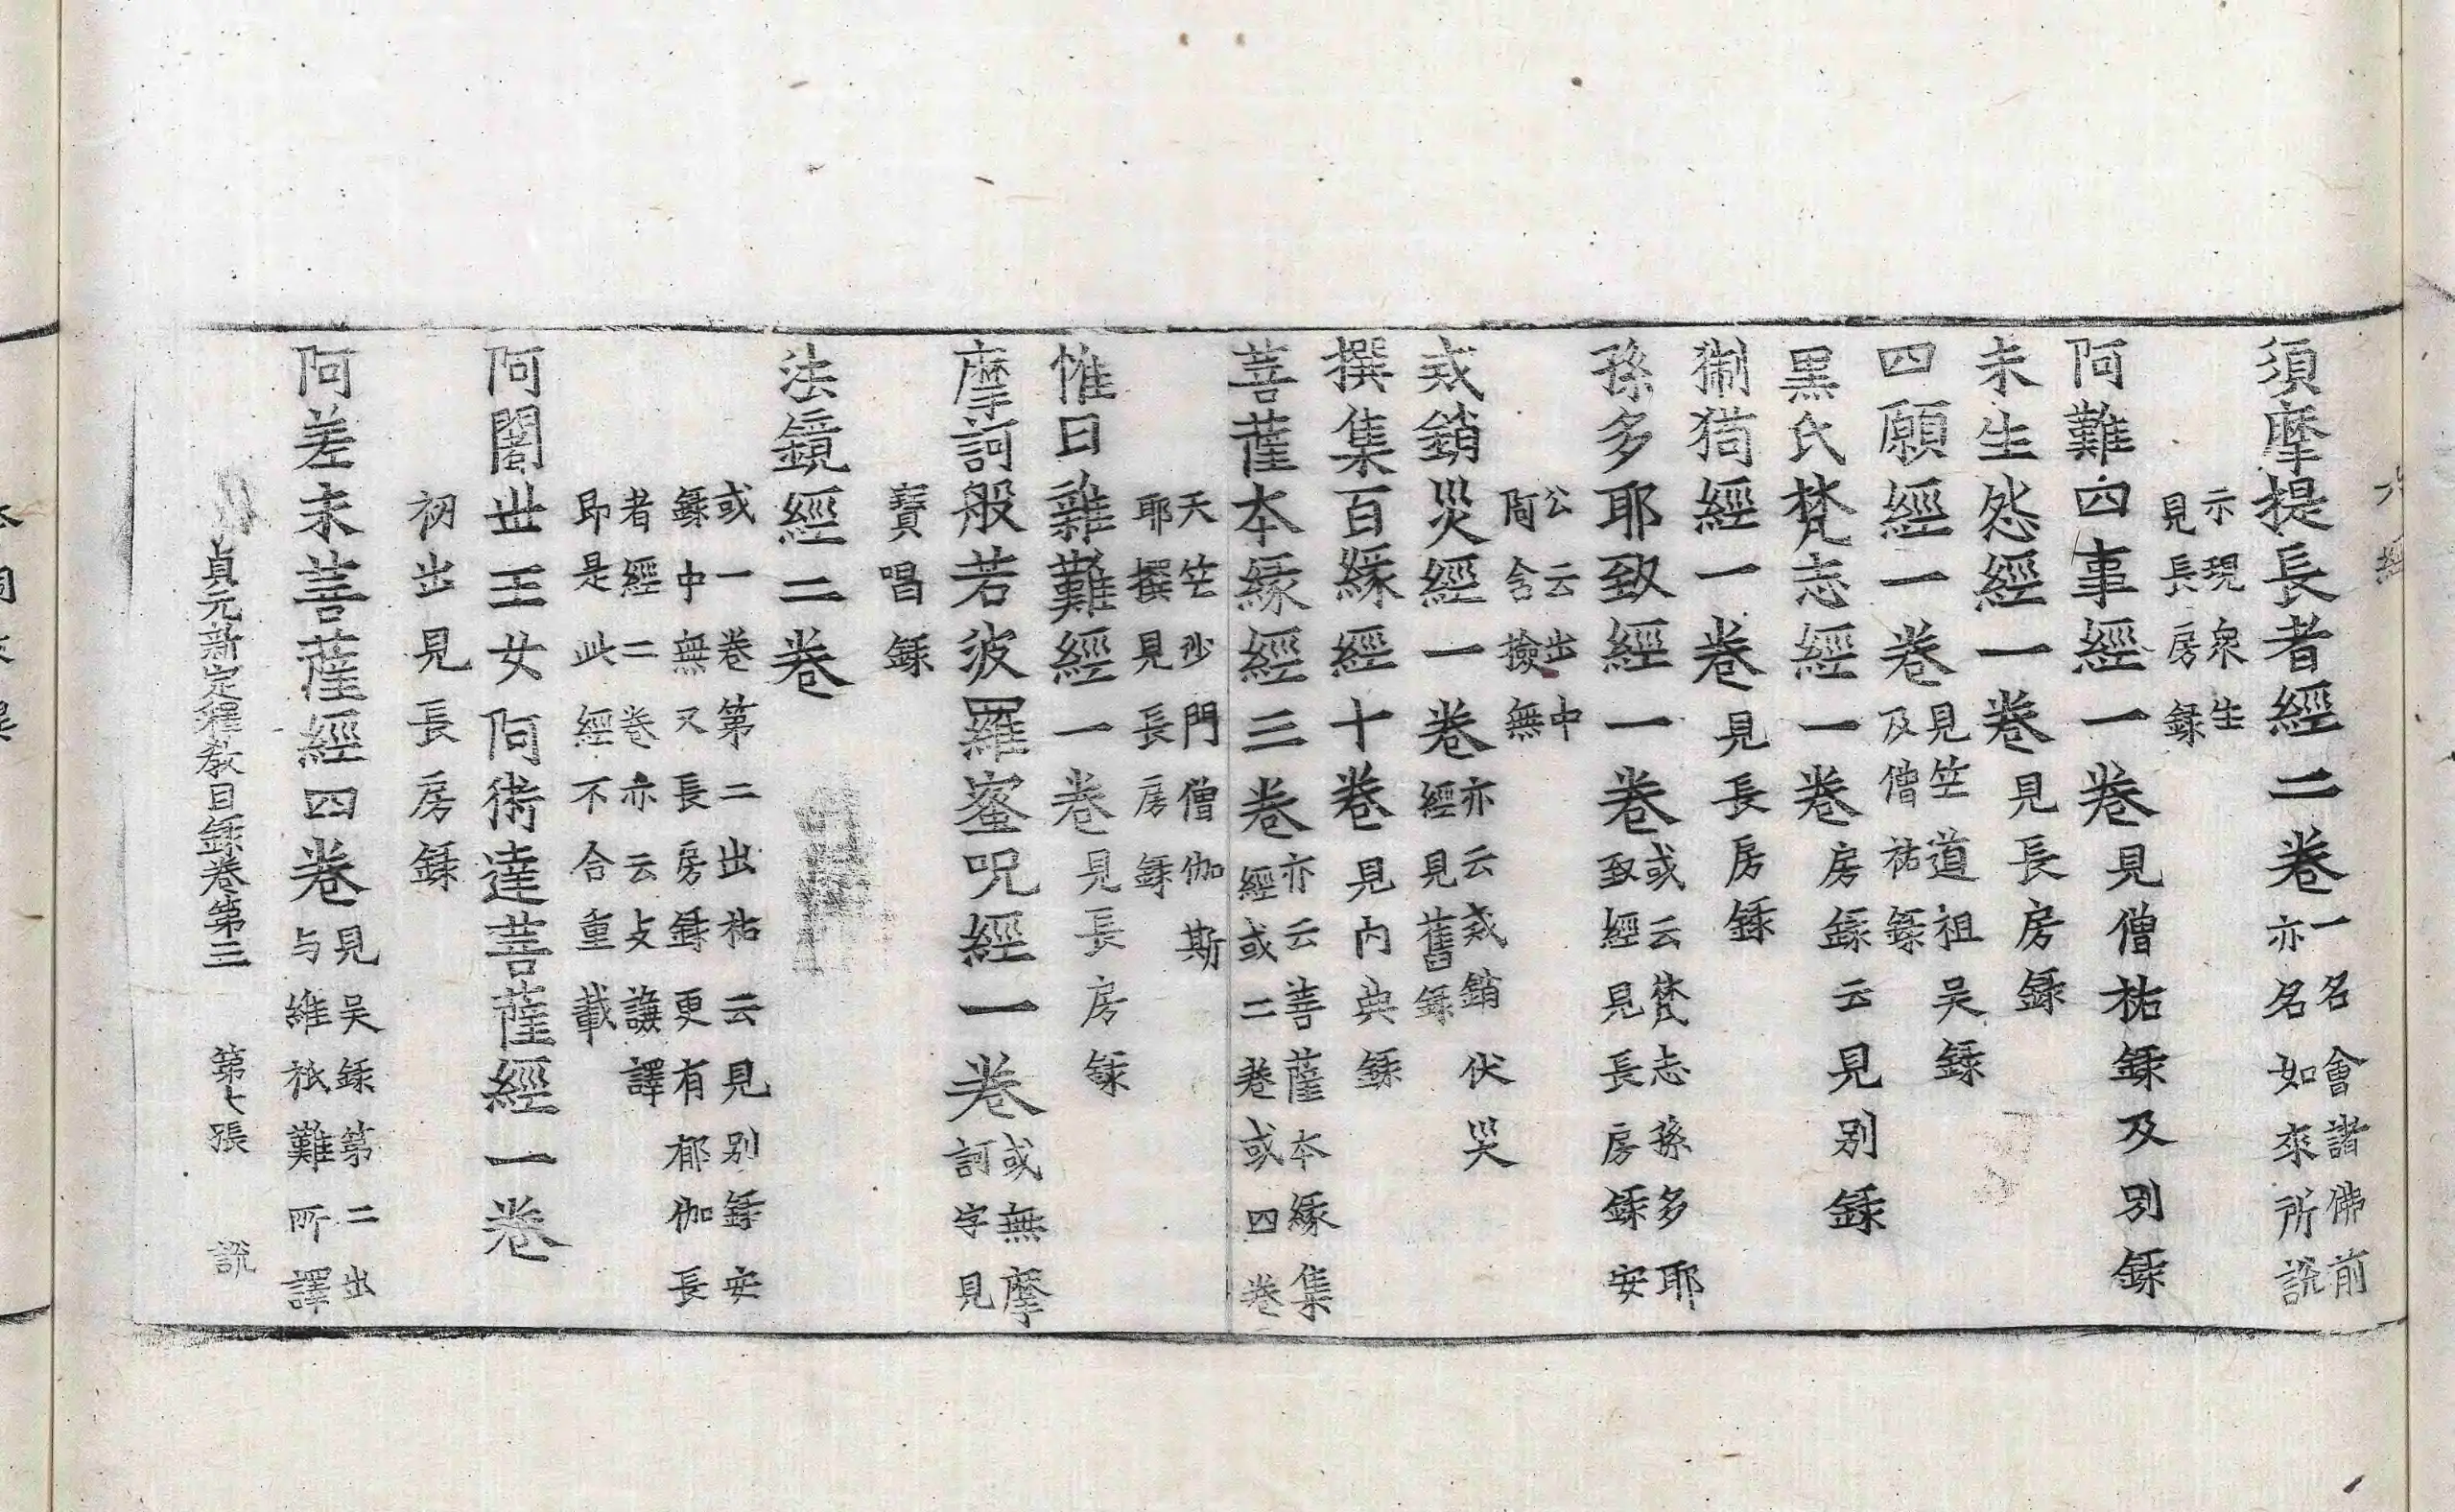 須摩提長者經二卷一名會諸佛前亦名如來所說
示現衆生見長房錄
阿難四事經一卷見僧祐錄及別錄
未生怨經一卷見長房錄
四願經一卷見竺道祖吳錄及僧祐錄
黑氏梵志經一卷房錄云見別錄
猘狗經一卷見長房錄
孫多耶致經一卷或云梵志孫多耶致經見長房錄安
公云出中阿含撿無
戒銷災經一卷亦云戒銷伏災經見舊錄
撰集百緣經十卷見內典錄
菩薩本緣經三卷亦云菩薩本緣集經或二卷或四卷
天竺沙門僧伽斯耶撰見長房錄
惟日雜難經一卷見長房錄
摩訶般若波羅蜜呪經一卷或無摩訶字見
寶唱錄
法鏡經二卷
或一卷第二出祐云見別錄安錄中無又長房錄更有郁伽長
者經二卷亦云支謙譯即是此經不合重載
阿闍世王女阿術達菩薩經一卷
初出見長房錄
阿差末菩薩經四卷見吳錄第二出与維祇難所譯
貞元新定釋教目錄卷第三 第七張 說